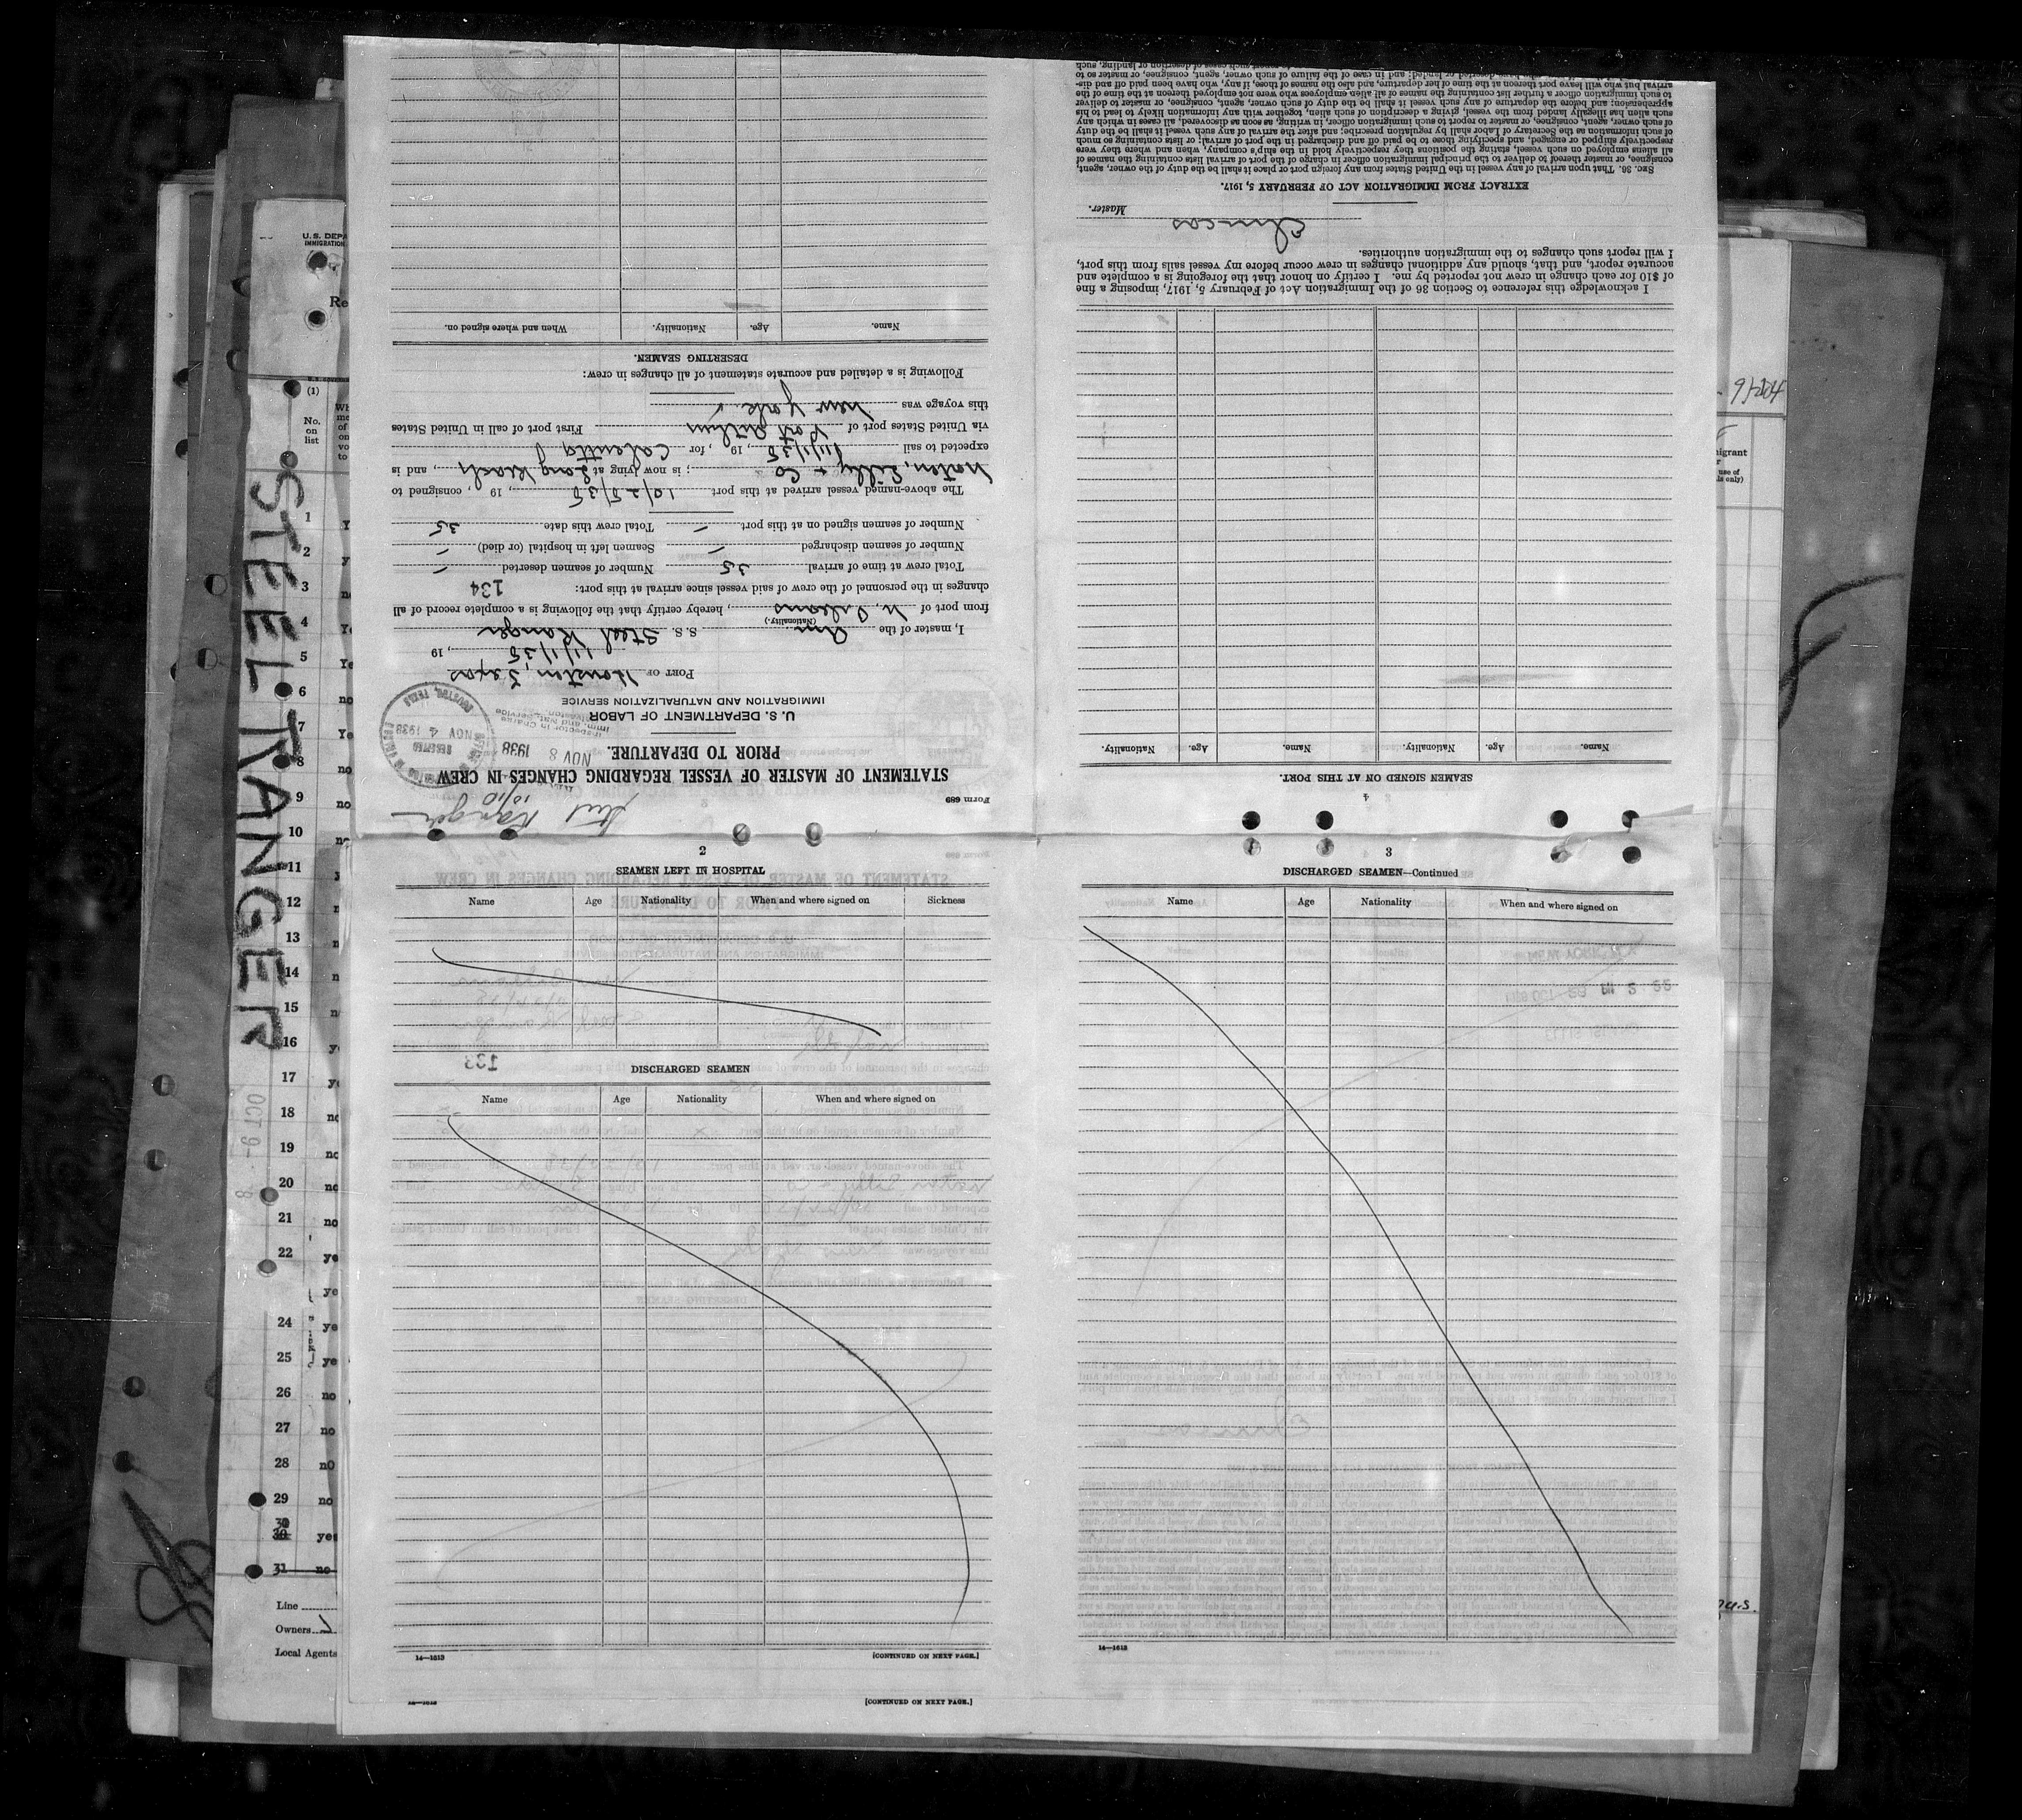 STEEL RANGER
U. S. DEPA
IMMIGRATION
Re
(1)
No.
on
list
1
2
3
4
5
6
7
8
9
10
11
12
13
14
15
16
17
18
19
20
21
22
24
25
26
27
28
29
30
31
Line
Owners
Local Agents
OCT -6
Form 689
Steel Ranger
10/10
STATEMENT OF MASTER OF VESSEL REGARDING CHANGES IN CREW
PRIOR TO DEPARTURE.
NOV 8 1938
RECEIVED
NOV 4 1938
HOUSTON, TEXAS
U. S. DEPARTMENT OF LABOR
IMMIGRATION AND NATURALIZATION SERVICE
Inspector in Charge
PORT OF Houston, Texas
11/1/38, 19
I, master of the Am S. S. Steel Ranger
(Nationality.)
from port of N. Orleans, hereby certify that the following is a complete record of all
changes in the personnel of the crew of said vessel since arrival at this port: 134
Total crew at time of arrival 35 Number of seamen deserted –
Number of seamen discharged – Seamen left in hospital (or died) –
Number of seamen signed on at this port – Total crew this date 35
The above-named vessel arrived at this port 10/28/38, 19 , consigned to
Norton, Lilly & Co; is now lying at Long Reach, and is
expected to sail 11/1/38, 19 , for Calcutta
via United States port of Port Arthur First port of call in United States
this voyage was New York
Following is a detailed and accurate statement of all changes in crew:
DESERTING SEAMEN.
Name. Age. Nationality. When and where signed on.
2
SEAMEN LEFT IN HOSPITAL
Name Age Nationality When and where signed on Sickness
133
DISCHARGED SEAMEN
Name Age Nationality When and where signed on
14—1613 [CONTINUED ON NEXT PAGE.]
14—1613 [CONTINUED ON NEXT PAGE.]
3
DISCHARGED SEAMEN—Continued
Name Age Nationality When and where signed on
14—1613
4
SEAMEN SIGNED ON AT THIS PORT.
Name. Age. Nationality. Name. Age. Nationality.
I acknowledge this reference to Section 36 of the Immigration Act of February 5, 1917, imposing a fine
of $10 for each change in crew not reported by me. I certify on honor that the foregoing is a complete and
accurate report, and that, should any additional changes in crew occur before my vessel sails from this port,
I will report such changes to the immigration authorities.
Master.
EXTRACT FROM IMMIGRATION ACT OF FEBRUARY 5, 1917.
SEC. 36. That upon arrival of any vessel in the United States from any foreign port or place it shall be the duty of the owner, agent,
consignee, or master thereof to deliver to the principal immigration officer in charge of the port of arrival lists containing the names of
all aliens employed on such vessel, stating the positions they respectively hold in the ship's company, when and where they were
respectively shipped or engaged, and specifying those to be paid off and discharged in the port of arrival; or lists containing so much
of such information as the Secretary of Labor shall by regulation prescribe; and after the arrival of any such vessel it shall be the duty
of such owner, agent, consignee, or master to report to such immigration officer, in writing, as soon as discovered, all cases in which any
such alien has illegally landed from the vessel, giving a description of such alien, together with any information likely to lead to his
apprehension; and before the departure of any such vessel it shall be the duty of such owner, agent, consignee, or master to deliver
to such immigration officer a further list containing the names of all alien employees who were not employed thereon at the time of the
arrival but who will leave port thereon at the time of her departure, and also the names of those, if any, who have been paid off and dis-